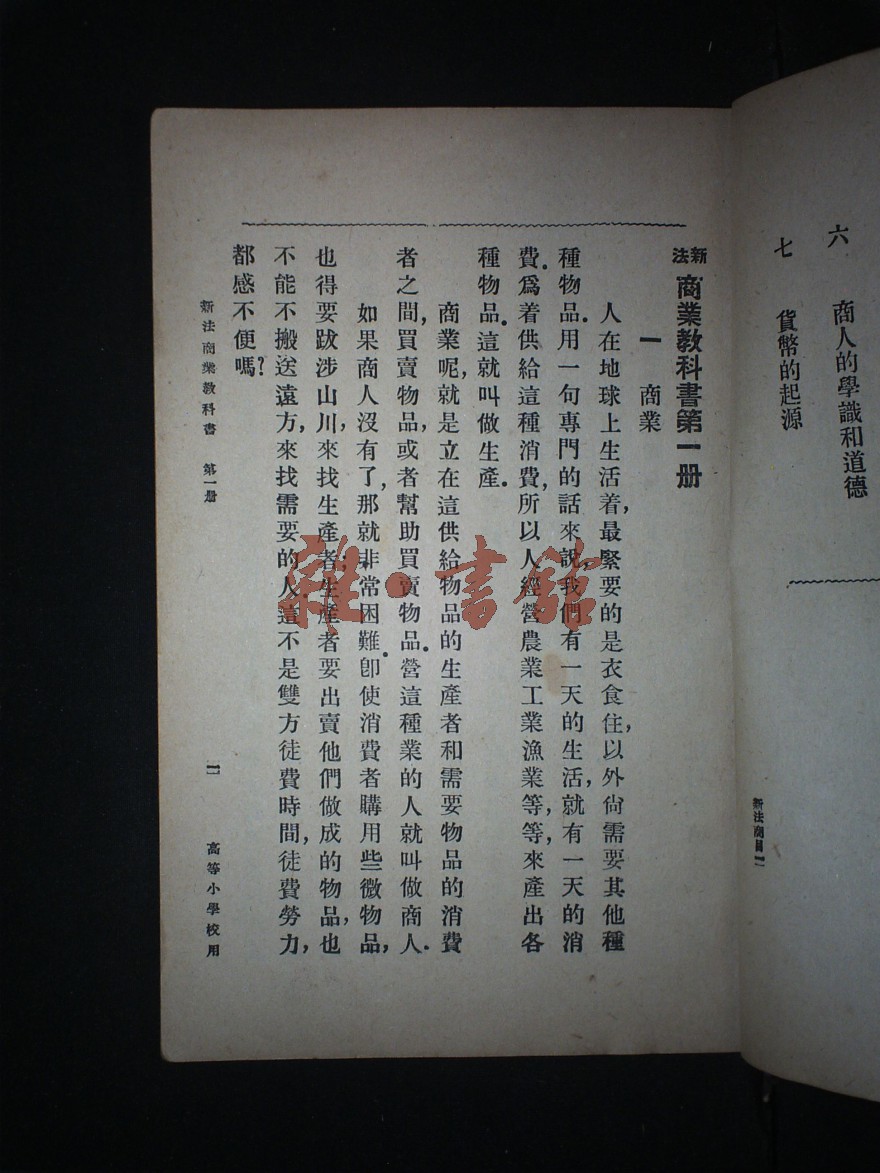 六　商人的學識和道德
七　貨幣的起源
新法商目一
新法商業教科書第一册
一　商業
人在地球上生活着,最緊要的是衣食住,以外尙需要其他種
種物品.用一句專門的話來說,我們有一天的生活,就有一天的消
費.爲着供給這種消費,所以人經營農業工業漁業等等,來產出各
種物品.這就叫做生產.
商業呢,就是立在這供給物品的生產者和需要物品的消費
者之間,買賣物品,或者幫助買賣物品.營這種業的人就叫做商人.
如果商人沒有了,那就非常困難.卽使消費者購用些微物品,
也得要跋涉山川,來找生產者;生產者要出賣他們做成的物品,也
不能不搬送遠方,來找需要的人.這不是雙方徒費時間,徒費勞力,
都感不便嗎?
新法商業教科書　第一册　一　高等小學校用
雜·書館